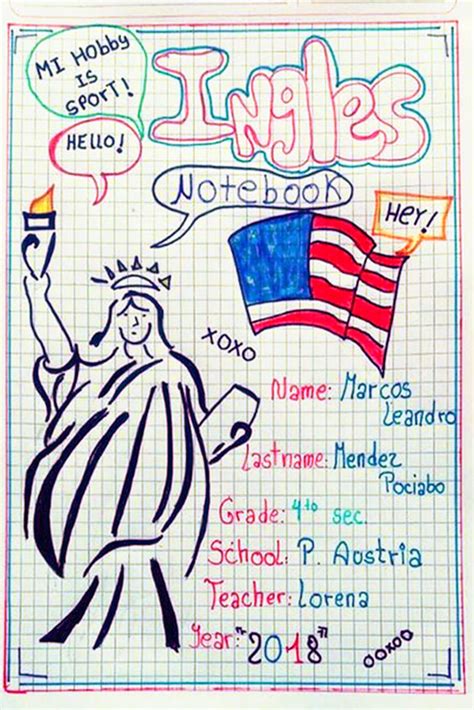 MI HOBBY
IS
SPORT!
Ingles
HELLO!
Notebook
HEY!
XOXO
Name: Marcos
Leandro
Lastname: Mendez
Pociabo
Grade: 4to sec.
School: P. Austria
Teacher: Lorena
Year: "2018"
ooxoo